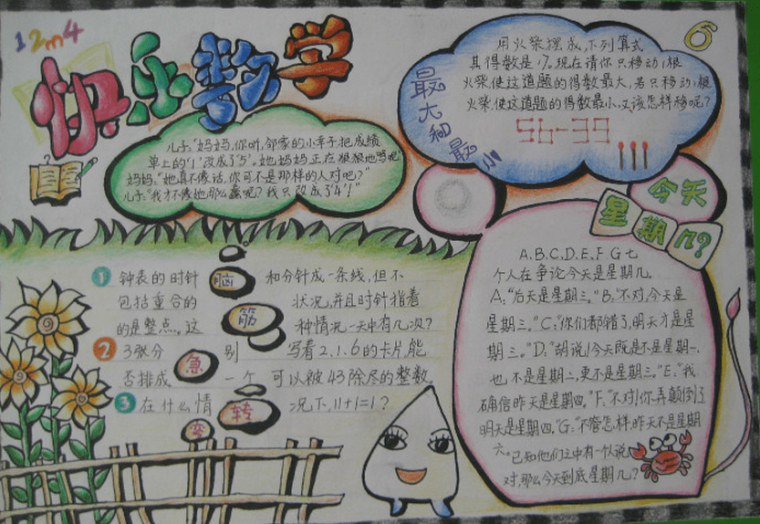 12m4
快乐数学
儿子:"妈妈,你听,邻家的小幸子把成绩
单上的'1'改成了'5'。她妈妈正在狠狠地骂她
妈妈:"她真不像话,你可不是那样的人对吧?"
儿子:"我才不像她那么贏呢?我只改成了'4'!"
最大和最小
用火柴摆成,下列算式
其得数是17。现在请你只移动1根
火柴使这道题的得数最大,若只移动1根
火柴,使这道题的得数最小,又该怎样移呢?
56-39
今天
星期几?
A、B、C、D、E、F、G七
个人在争论今天是星期几。
A:"后天是星期三。"B:"不对,今天是
星期三。"C:"你们都错了,明天才是星
期三。"D:"胡说!今天既是不是星期一,
也不是星期二,更不是星期三。"E:"我
确信昨天是星期四。"F:"不对!你弄颠倒了
明天是星期四。"G:"不管怎样,昨天不是星期
六。"已知他们之中有一个人说
对,那么今天到底星期几?
脑筋急转弯
1 钟表的时针和分针成一条线,但不
包括重合的状况,并且时针指着
的是整点。这种情况一天中有几次?
2 3张分别写着2、1、6的卡片,能
否排成一个可以被43除尽的整数
3 在什么情况下,11+1=1?